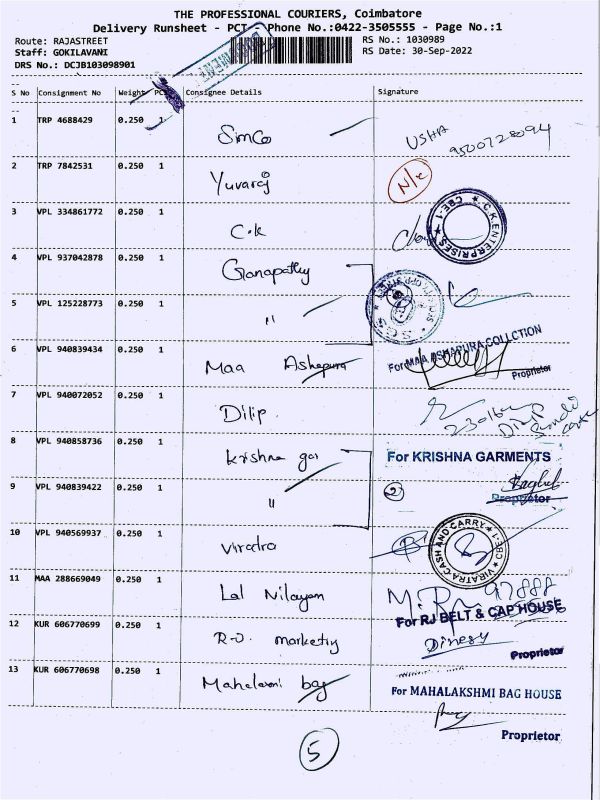 THE PROFESSIONAL COURIERS, Coimbatore
Delivery Runsheet - PCT - Phone No.:0422-3505555 - Page No.:1
Route: RAJASTREET RS No.: 1030989
Staff: GOKILAVANI RS Date: 30-Sep-2022
DRS No.: DCJB103098901
S No Consignment No Weight PCS Consignee Details Signature
1 TRP 4688429 0.250 1 SimCo USHA
9500728094
2 TRP 7842531 0.250 1 Yuvaraj N/C
3 VPL 334861772 0.250 1 C.K C.K ENTERPRISES CBE-1
4 VPL 937042878 0.250 1 Ganapathy
5 VPL 125228773 0.250 1 "
6 VPL 940839434 0.250 1 Maa Ashapura For MAA ASHAPURA COLLCTION
Proprietor
7 VPL 940072052 0.250 1 Dilip
8 VPL 940858736 0.250 1 Krishna gar For KRISHNA GARMENTS
9 VPL 940839422 0.250 1 " 2 Proprietor
10 VPL 940569937 0.250 1 Viratra VIRATRA CASH AND CARRY CBE-1
11 MAA 288669049 0.250 1 Lal Nilayam
12 KUR 606770699 0.250 1 R.J. marketiy For RJ BELT & CAP HOUSE
Dinesy
Proprietor
13 KUR 606770698 0.250 1 Mahalaxmi bag For MAHALAKSHMI BAG HOUSE
Proprietor
5